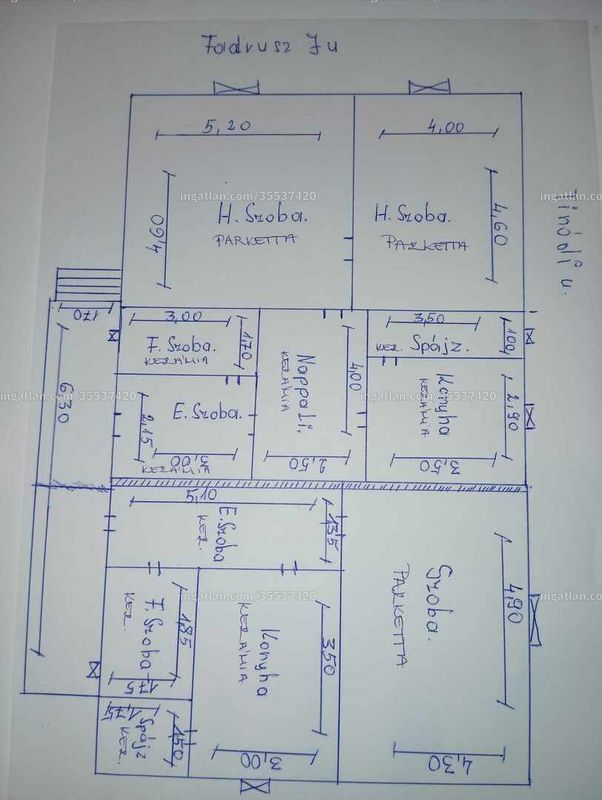 Fadrusz J u
Tinódi u.
5,20
4,00
4,60
H. Szoba.
PARKETTA
H. Szoba.
PARKETTA
4,60
ingatlan.com/35537420
ingatlan.com/35537420
170
3,00
F. Szoba.
KERÁMIA
170
Nappali.
KERÁMIA
400
3,50
KER. Spájz.
100
6,30
E. Szoba.
2,15
3,00
KERÁMIA
2,50
Konyha
KERÁMIA
2,90
3,50
ingatlan.com/35537420
ingatlan.com/35537420
5,10
E. Szoba
KER.
135
Szoba.
PARKETTA
4,90
4,30
F. Szoba
KER.
1,85
175
Konyha
KERÁMIA
350
3,00
1,75
Spájz
KER.
150
ingatlan.com/35537420
ingatlan.com/35537420